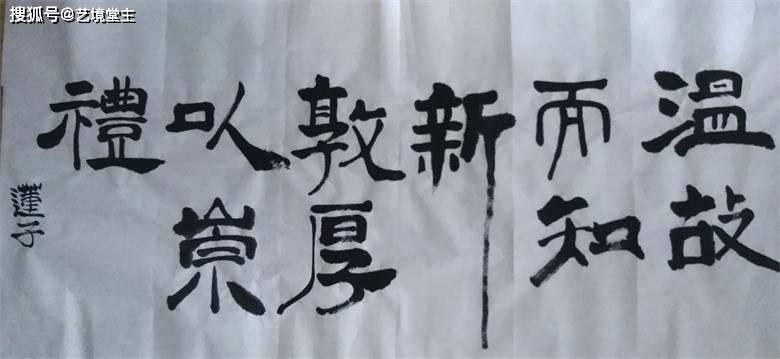 搜狐号@艺境堂主
溫故
而知
新
敦厚
以崇
禮
蓮子